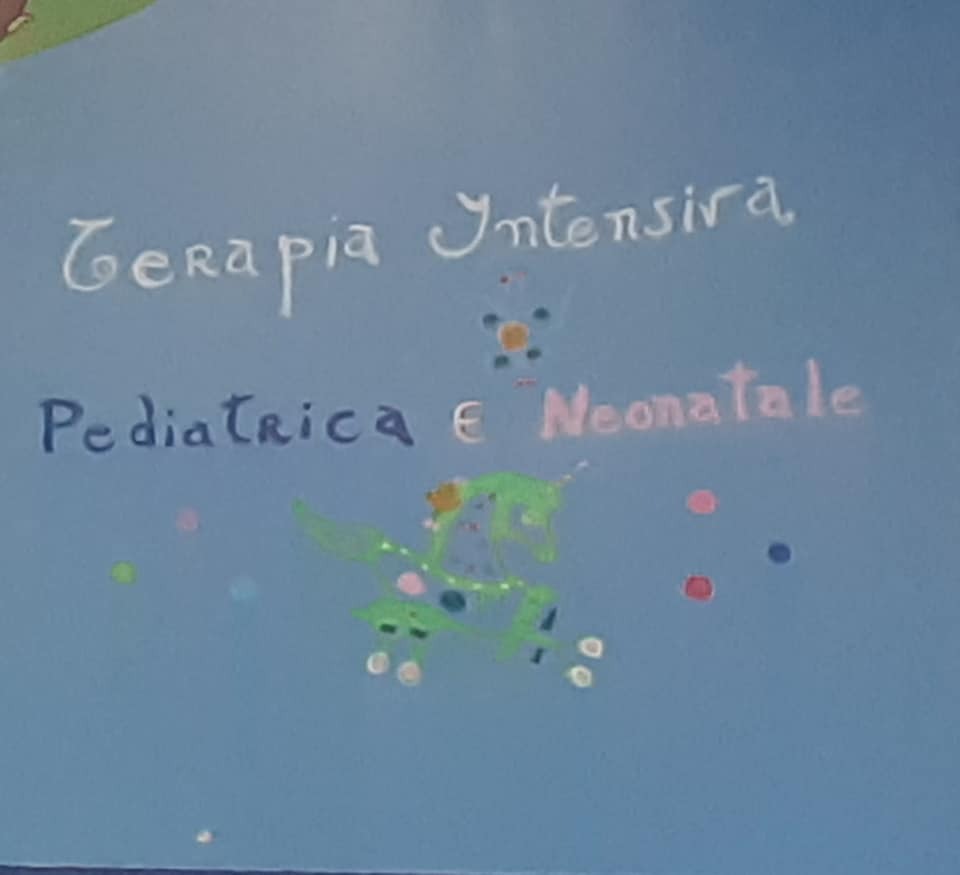 Terapia Intensiva
Pediatrica E Neonatale